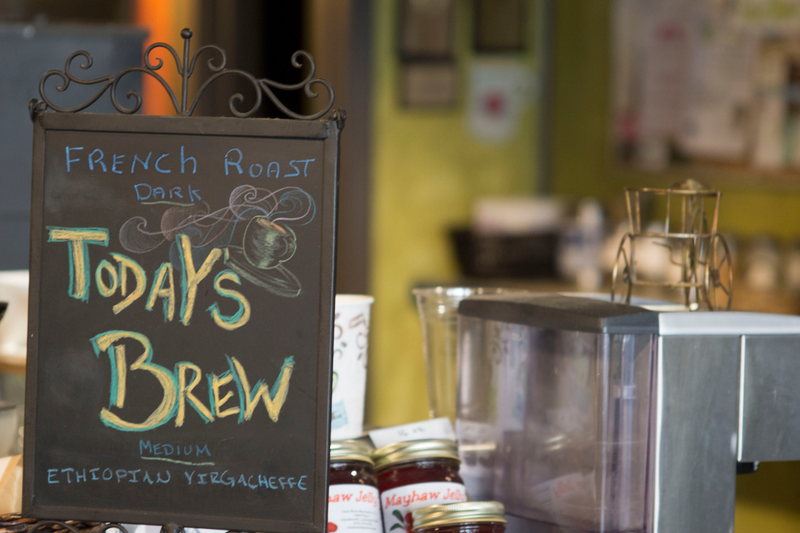 FRENCH ROAST
DARK
TODAY'S
BREW
MEDIUM
ETHIOPIAN YIRGACHEFFE
haw Jelly
Mayhaw Jelly